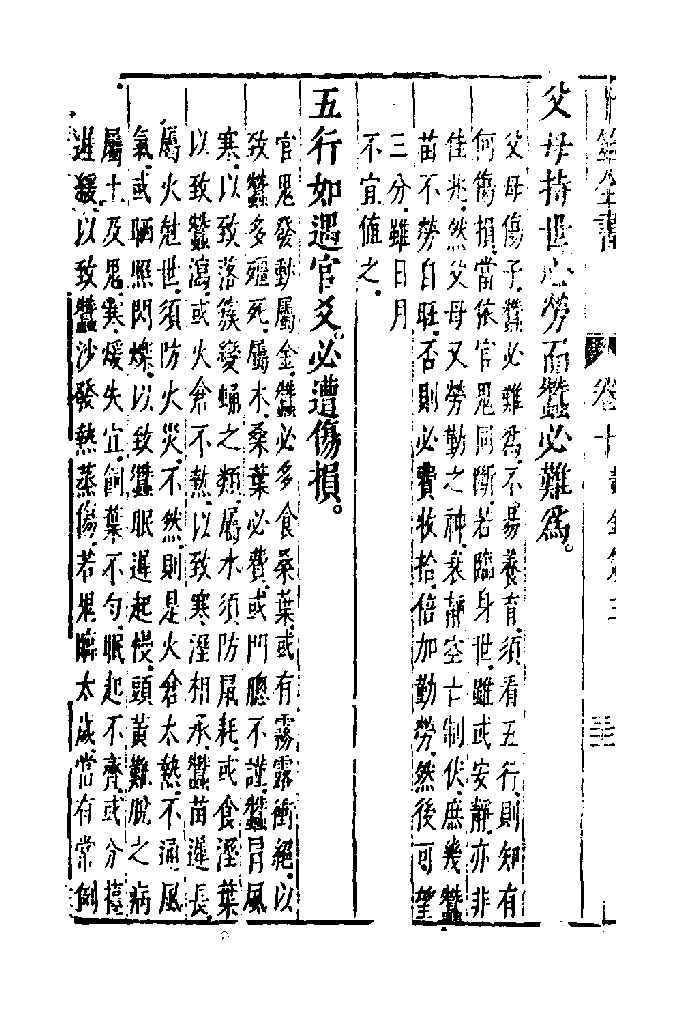 卜筮全書 卷十 黃金策三
父母持世必勞而蠶必難為。
父母傷子蠶必難為不易養育須看五行則知有
何傷損當依官鬼同斷若臨身世雖或安靜亦非
佳兆然父母又勞勤之神衰靜空亡制伏庶幾蠶
苗不勞自旺否則必費收拾倍加勤勞然後可望
三分雖日月
不宜值之
五行如遇官爻必遭傷損。
官鬼發動屬金蠶必多食桑葉或有霧露衝絕以
致蠶多殭死屬木桑葉必費或門牕不謹蠶冒風
寒以致落簇變蛹之類屬水須防鼠耗或食溼葉
以致蠶瀉或火倉不熱以致寒溼相承蠶苗遲長
屬火尅世須防火災不然則是火倉太熱不通風
氣或晒照閃爍以致蠶眠遲起慢頭黃難脫之病
屬土及鬼寒煖失宜飼葉不勻眠起不齊或分擡
遲緩以致蠶沙發熱蒸傷若鬼臨太歲當有常例